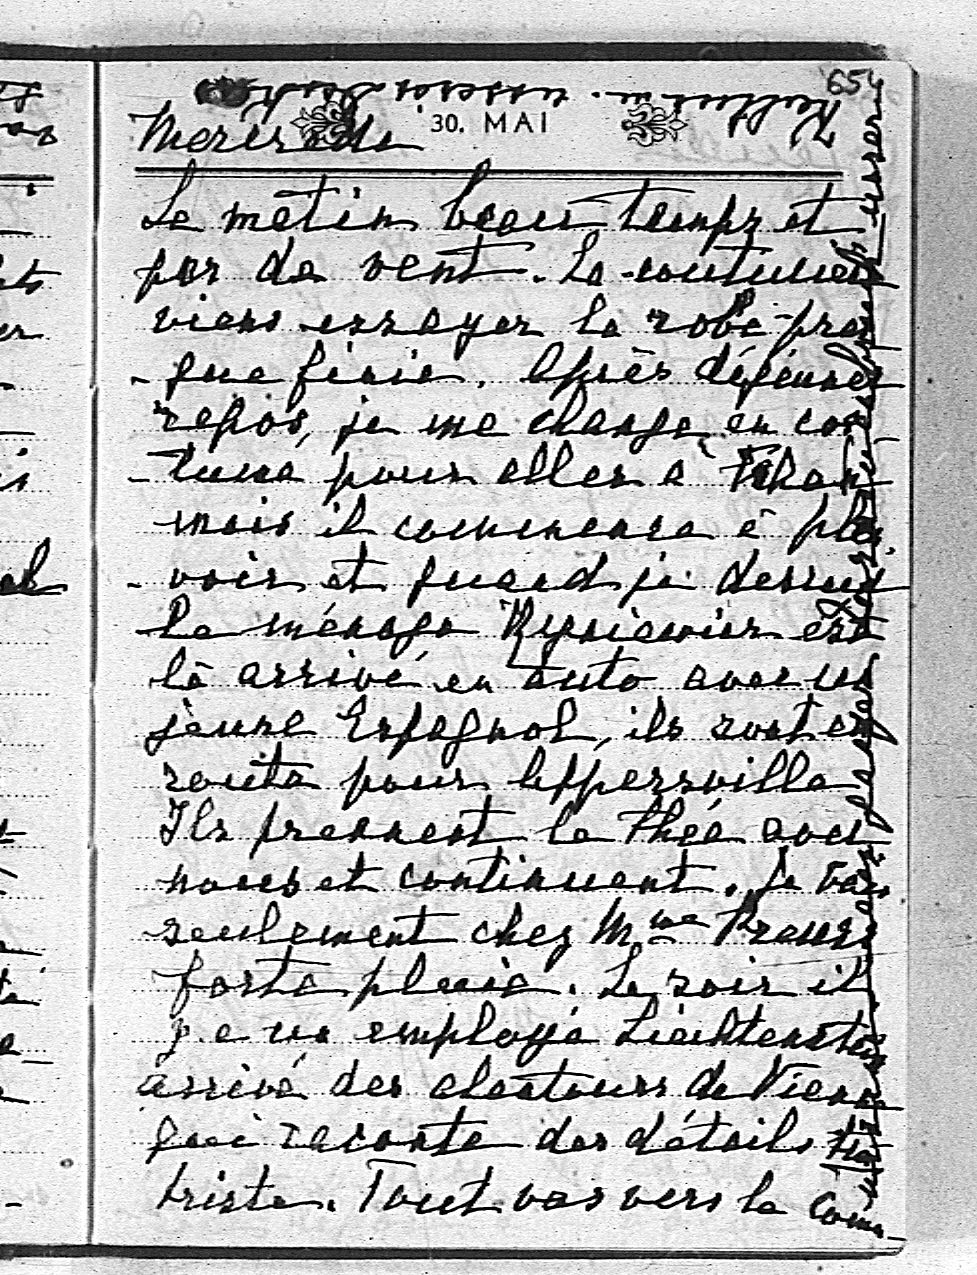 654
30. MAI
Mercredi
Le matin beau temps et
par de vent. La couturière
viens essayer la robe pres
que finie. Après déjeuner
repos, je me change en cos
tume pour aller à Thon
mais il commença à pleu
voir et quand je dessend
le ménage Rysiewier est
là arrivé en auto avec un
jeune Espagnol, ils sont en
route pour Appersville
Ils prennent le théé avec
nous et continuent. Je vais
seulement chez Mme Kraus
forte pluie. Le soir il
y.e un employé Liechtenstein
arrivé des alentours de Vienne
qui raconte des détails très
triste. Tout vas vers le Com